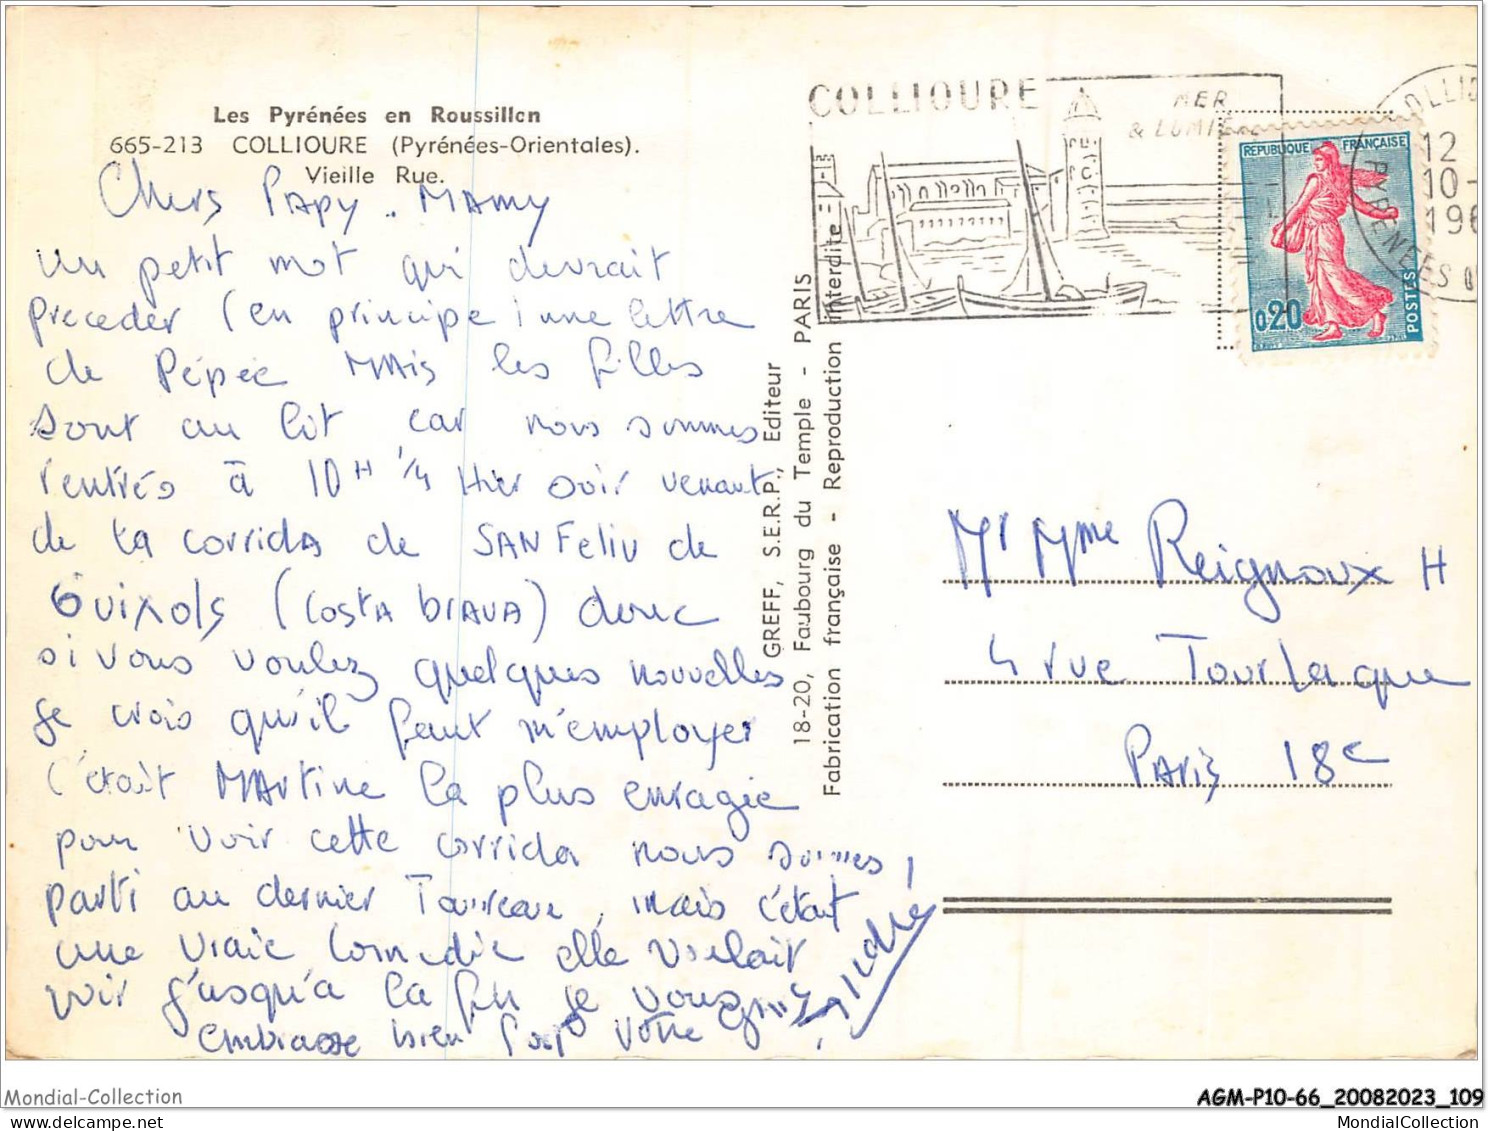 Les Pyrénées en Roussillon
665-213 COLLIOURE (Pyrénées-Orientales).
Vieille Rue.
Chers PAPY . MAMY
un petit mot qui devrait
preceder (en principe) une lettre
de Pépée MAis les filles
sont au lit car nous sommes
rentrés à 10H 1/4 Hier soir venant
de la corrida de SAN Feliu de
Guixols (Costa brava) donc
si vous voulez quelques nouvelles
je crois qu'il faut m'employer
C'était MARtine la plus enragée
pour voir cette corrida nous sommes
parti au dernier Taureau, mais c'était
une vraie Comedie elle voulait
voir jusqu'a la fin je vous
embrasse bien fort votre
André
GREFF, S.E.R.P., Editeur
18-20, Faubourg du Temple - PARIS
Fabrication française - Reproduction interdite
COLLIOURE
MER
& LUMIERE
REPUBLIQUE FRANÇAISE
0,20
POSTES
COLLIO
12
10-
196
PYRENEES O
Mr Mme Reignoux H
4 rue Tourlaque
PARis 18e
Mondial-Collection
AGM-P10-66_20082023_109
www.delcampe.net
MondialCollection